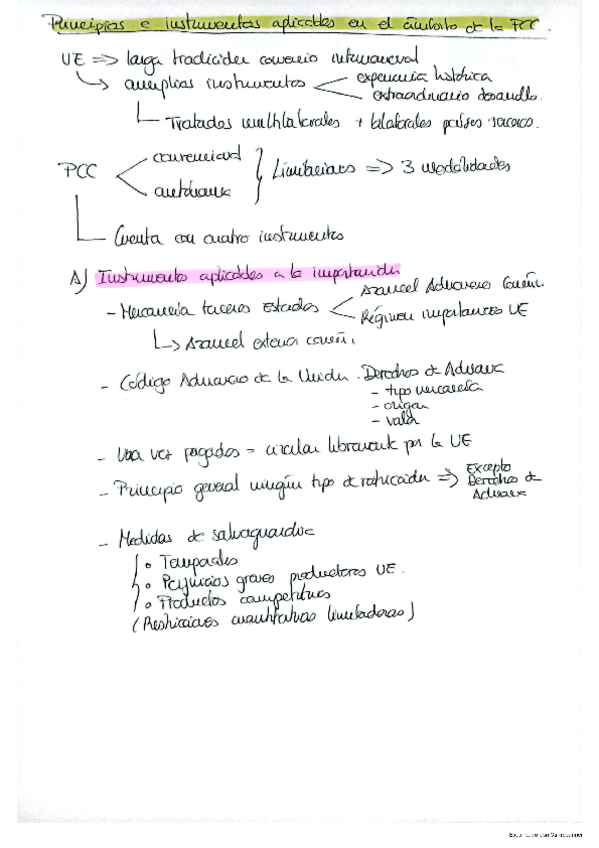 Principios e instrumentos aplicables en el ámbito de la PCC.
UE => larga tradición comercio internacional
↳ amplios instrumentos < experiencia histórica
extraordinario desarrollo.
Tratados multilaterales + bilaterales países terceros.
PCC < comercial
autónoma } Limitaciones => 3 modalidades
Cuenta con cuatro instrumentos
A) Instrumentos aplicables a la importación
- Mercancía terceros Estados < Arancel Aduanero Común
Régimen importaciones UE
↳ Arancel exterior común
- Código Aduanero de la Unión. Derechos de Aduana
- tipo mercancía
- origen
- valor
- Una vez pagados = circular libremente por la UE
- Principio general ningún tipo de restricción => Excepto Derechos de Aduana
- Medidas de salvaguardia
o Temporales
o Perjuicios graves productores UE.
o Productos competitivos
(Restricciones cuantitativas limitadoras)